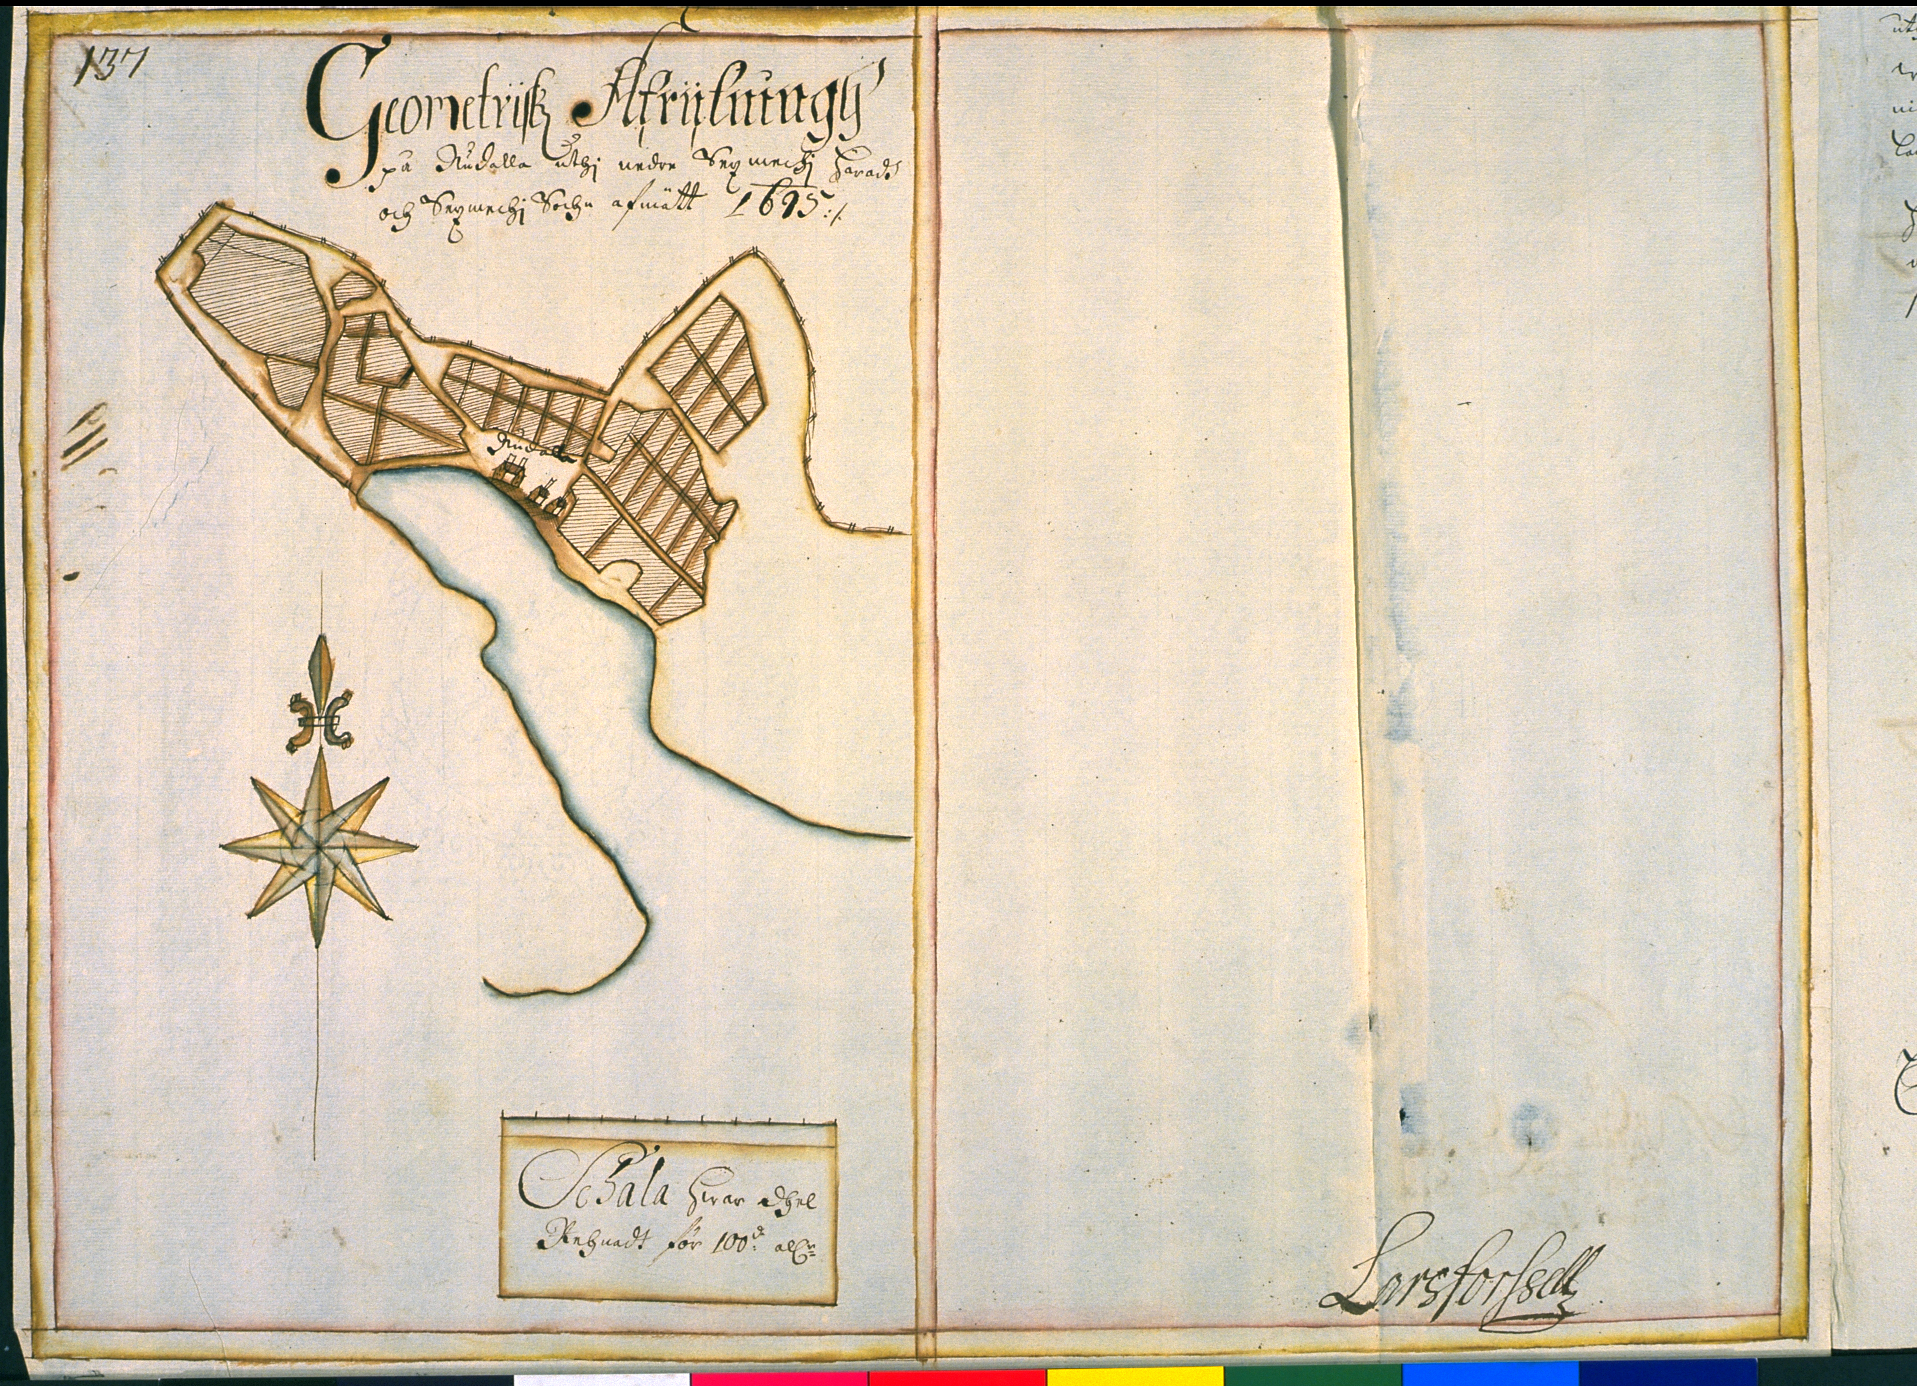 137
Geometrisk Afritningh
på Nudalla uthj nedre Sexmechj Härads
och Sexmechj Sochn afmätt 1695:/.
Nudalla
Schala hwar dhel
Rehnadt för 100de aln
Lars forssell